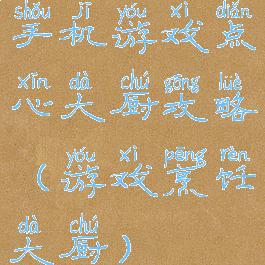 shǒu jī yóu xì diǎn
手机游戏点
xīn dà chú gōng lüè
心大厨攻略
yóu xì pēng rèn
（游戏烹饪
dà chú
大厨）